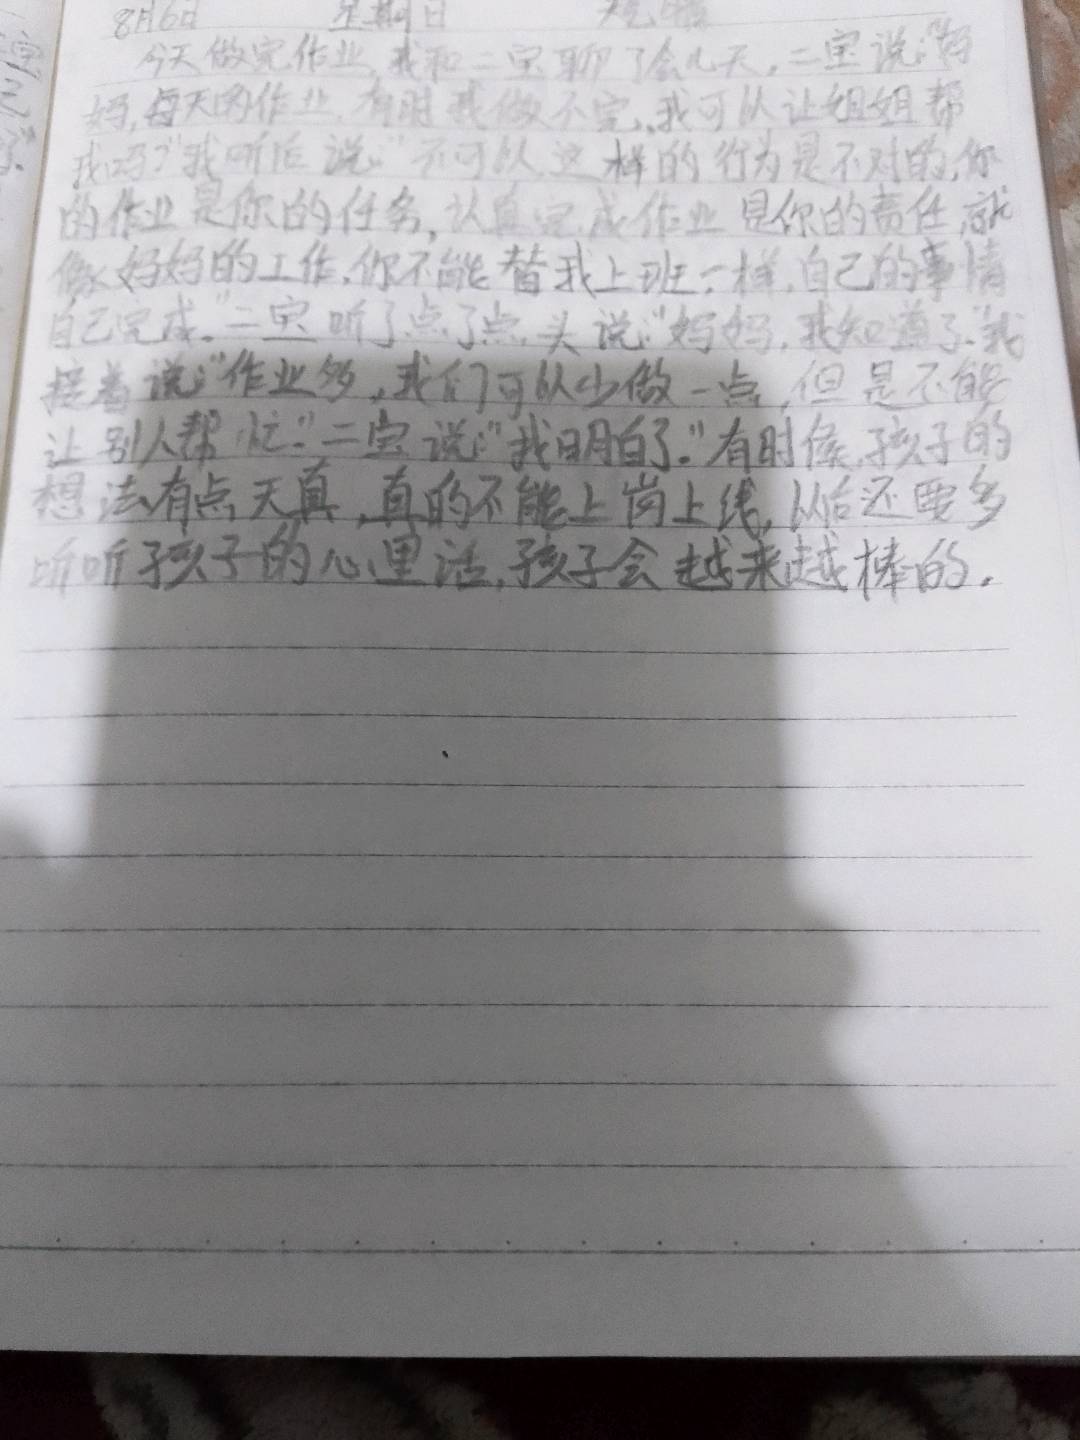 8月6日 星期日 天气晴
今天做完作业,我和二宝聊了会儿天,二宝说:“妈
妈,每天的作业,有时我做不完,我可以让姐姐帮
我吗?”我听后说:“不可以,这样的行为是不对的,你
的作业是你的任务,认真完成作业是你的责任,就
像妈妈的工作,你不能替我上班一样,自己的事情
自己完成。”二宝听了点了点头说:“妈妈,我知道了。”我
接着说:“作业多,我们可以少做一点,但是不能
让别人帮忙。”二宝说:“我明白了。”有时候,孩子的
想法有点天真,真的不能上岗上线,以后还要多
听听孩子的心里话,孩子会越来越棒的。